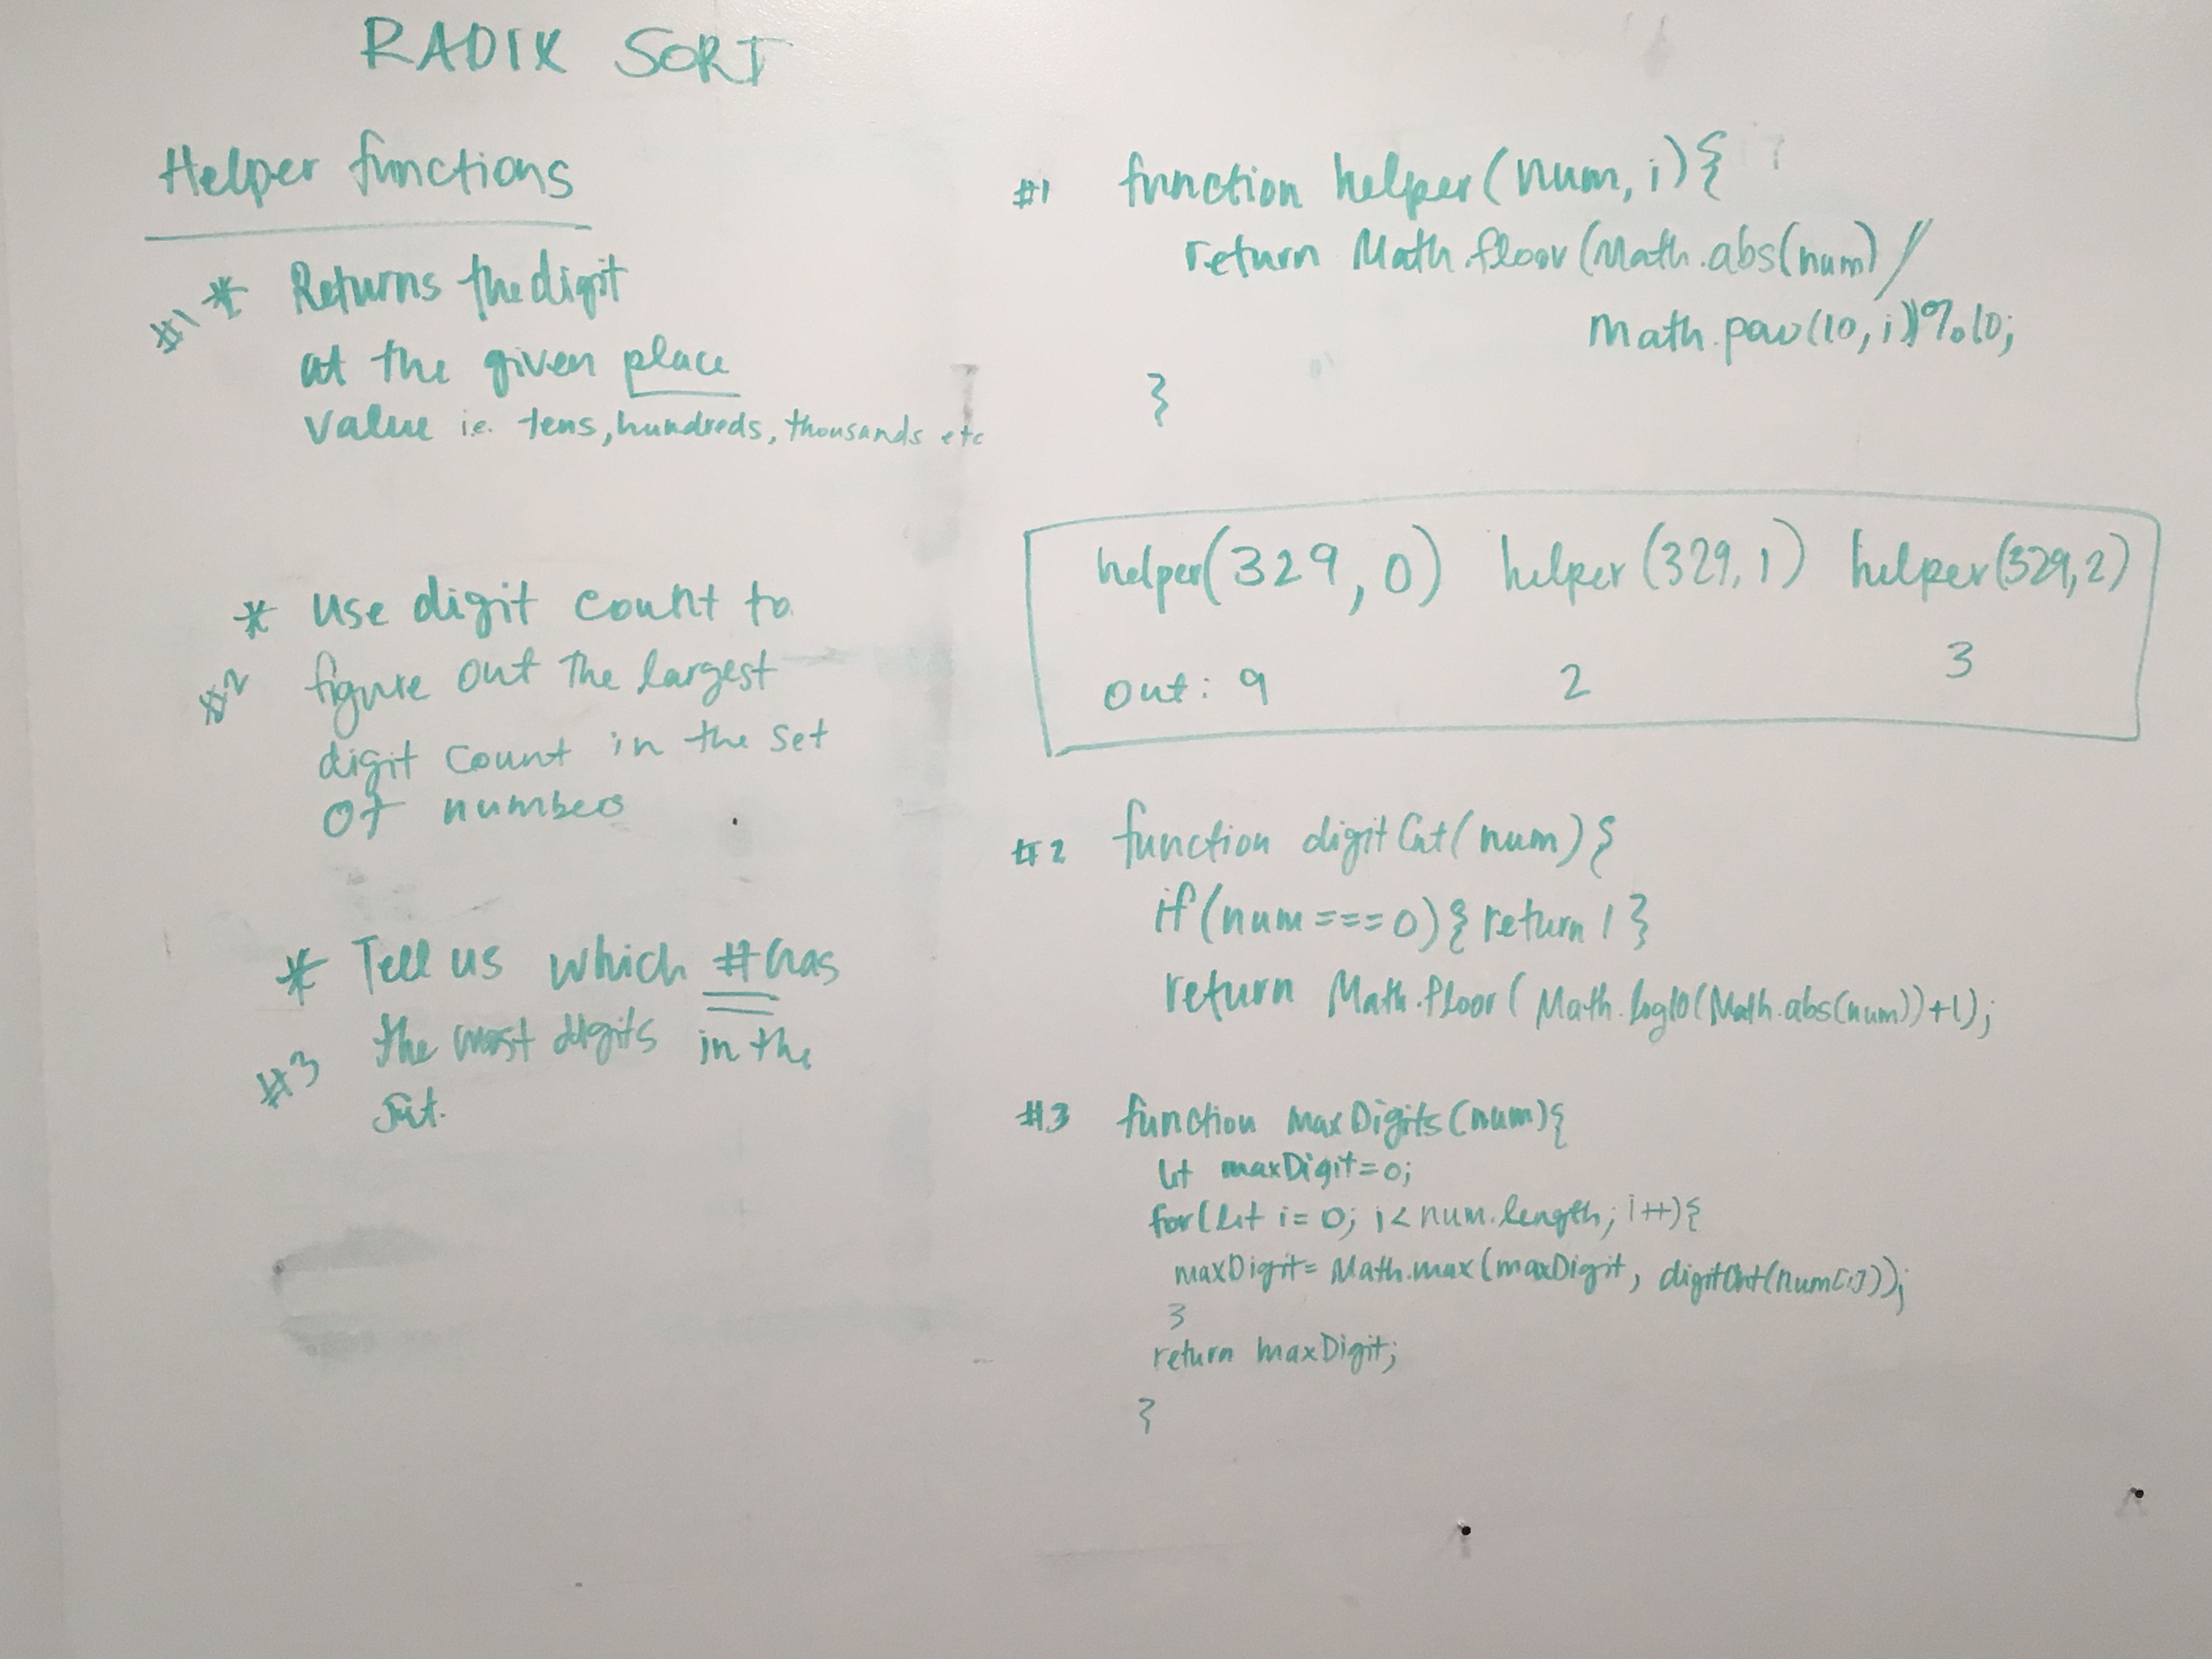 RADIX SORT
Helper functions
#1 * Returns the digit
at the given place
value i.e. tens, hundreds, thousands etc
* use digit count to
#2 figure out the largest
digit count in the set
of numbers
* Tell us which # has
#3 the most digits in the
set.
#1 function helper(num, i){
return Math.floor(Math.abs(num) /
Math.pow(10, i))%10;
}
helper(329, 0) helper(329, 1) helper(329, 2)
out: 9 2 3
#2 function digitCnt(num){
if(num===0){return 1}
return Math.floor(Math.log10(Math.abs(num))+1);
#3 function maxDigits(num){
let maxDigit=0;
for(let i=0; i<num.length; i++){
maxDigit= Math.max(maxDigit, digitCnt(num[i]));
}
return maxDigit;
}